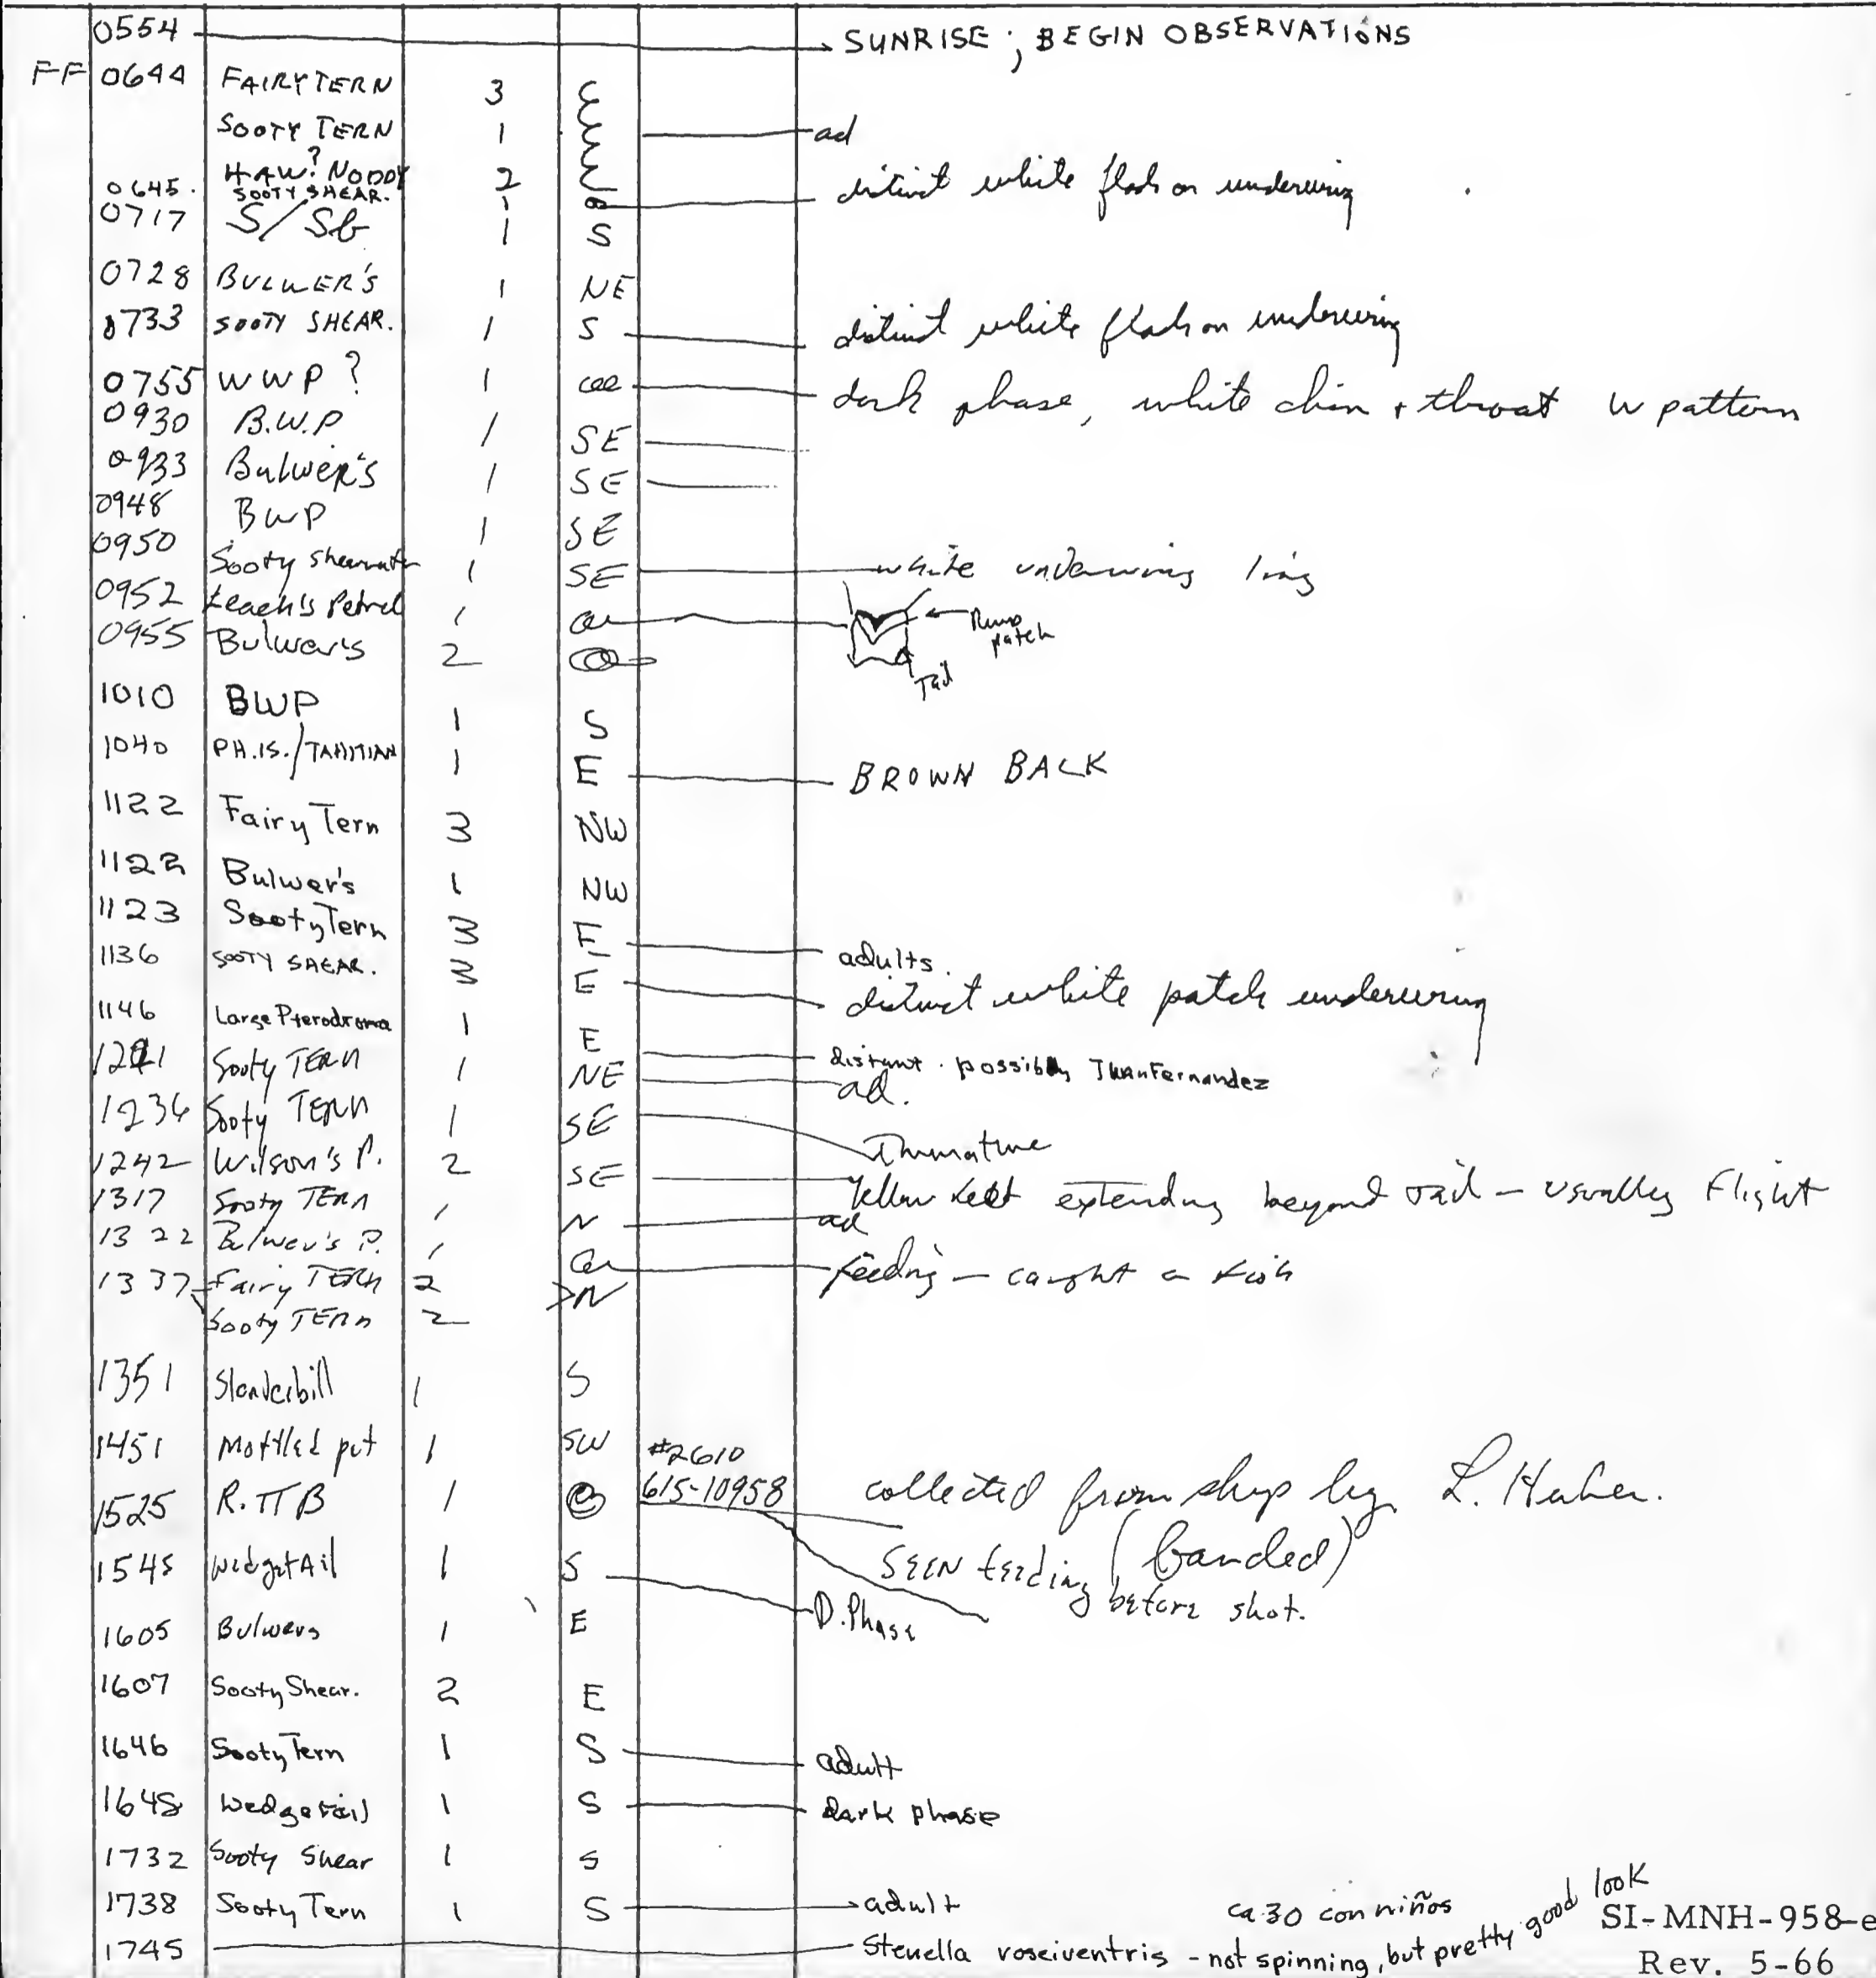 0554 SUNRISE ; BEGIN OBSERVATIONS
FF 0644 FAIRY TERN 3
SOOTY TERN 1 ad
HAW? NODDY 2
0645 SOOTY SHEAR. 1 distinct white flash on underwing
0717 S/Sb 1 S
0728 BULWER'S 1 NE
0733 SOOTY SHEAR. 1 S distinct white flash on underwing
0755 WWP? 1 dark phase, white chin + throat W pattern
0930 B.W.P 1 SE
0933 Bulwer's 1 SE
0948 BWP 1 SE
0950 Sooty shearwater 1 SE white underwing
0952 Leach's Petrel 1 Rump patch
Tail
0955 Bulwer's 2
1010 BWP 1 S
1040 PH.IS./TAHITIAN 1 E BROWN BACK
1122 Fairy Tern 3 NW
1122 Bulwer's 1 NW
1123 Sooty Tern 3 E adults.
1136 SOOTY SHEAR. 3 E distinct white patch underwing
1146 Large Pterodroma 1 E distant. possibly Juan Fernandez
1221 Sooty TERN 1 NE ad.
1236 Sooty TERN 1 SE Immature
1242 Wilson's P. 2 SE Yellow extending beyond tail - usually Flight
1317 Sooty TERN 1 N ad
1322 Bulwer's P. 1 feeding - caught a fish
1337 Fairy TERN 2 N
Sooty TERN 2
1351 Slenderbill 1 S
1451 Mottled pet 1 SW
1525 R.TTB 1 #2610 615-10958 collected from ship by L. Huber.
(banded)
SEEN feeding before shot.
1545 WedgetAil 1 S D. Phase
1605 Bulwers 1 E
1607 Sooty Shear. 2 E
1646 Sooty Tern 1 S adult
1648 Wedgetail 1 S dark phase
1732 Sooty Shear 1 S
1738 Sooty Tern 1 S adult
ca 30 con niños
1745 Stenella roseiventris - not spinning, but pretty good look
SI-MNH-958-e
Rev. 5-66